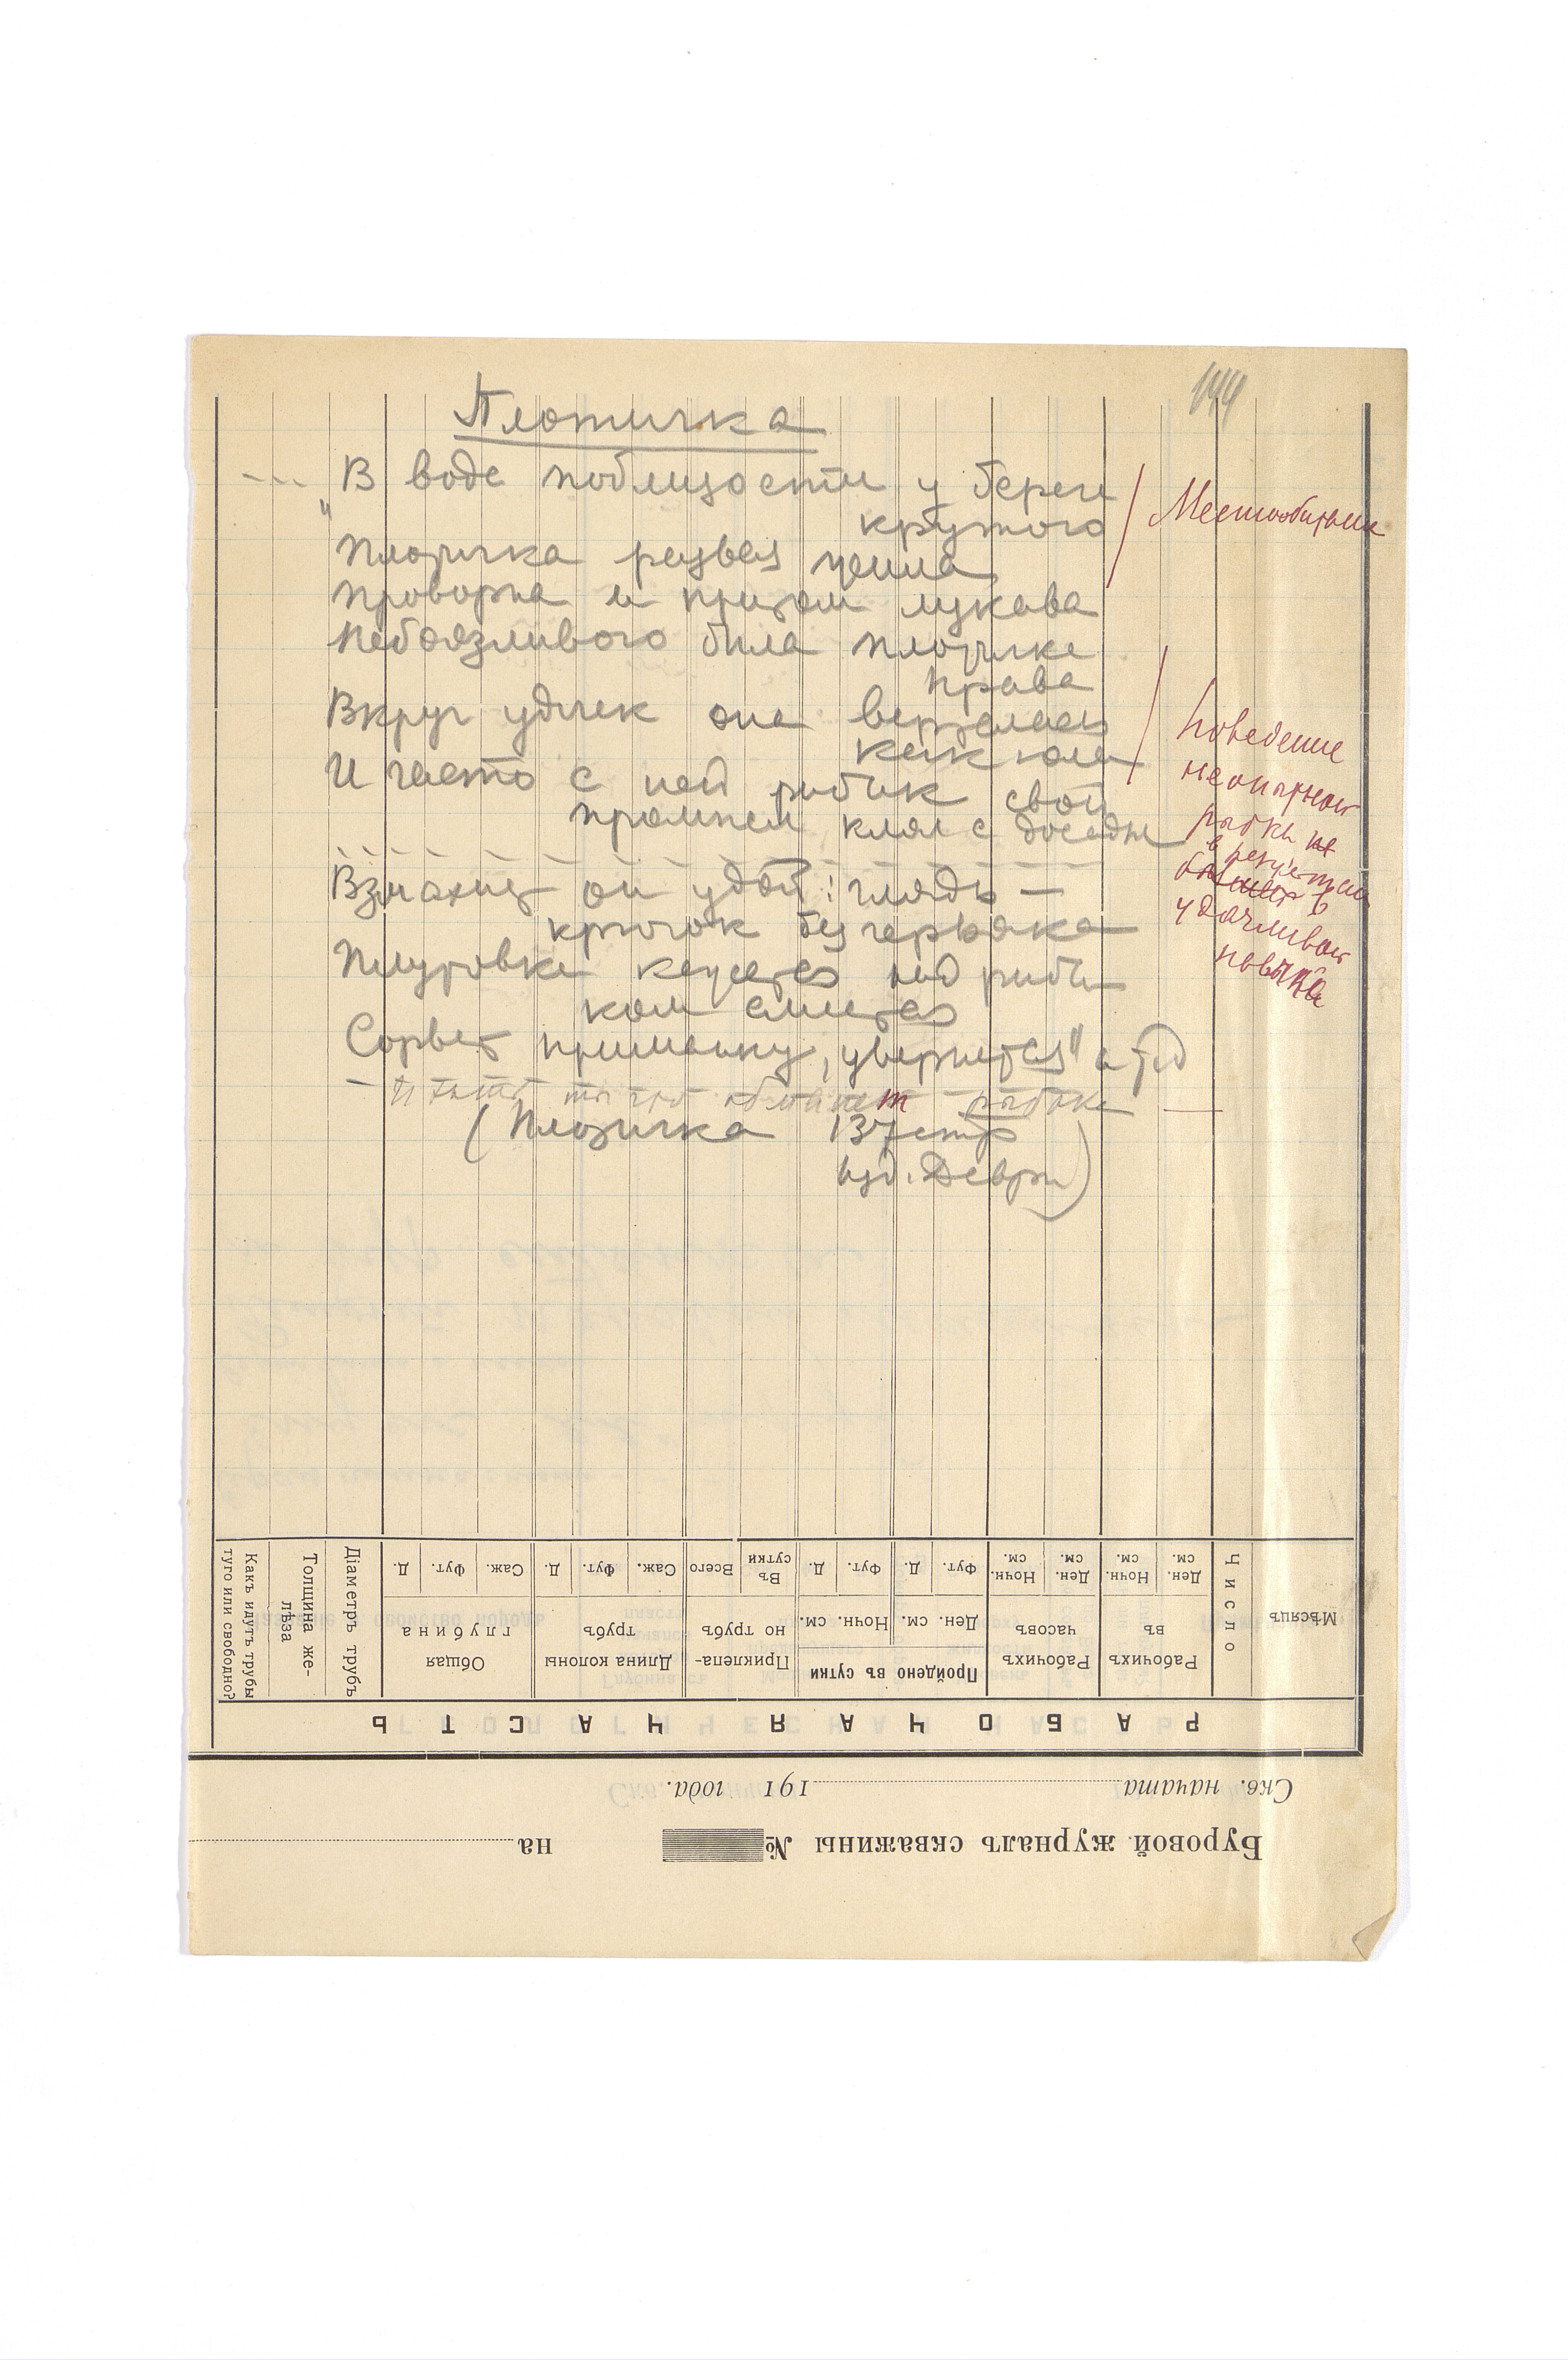 144
Плотичка
--- В воде поблизости у берега
крутого
"Плотичка резвая жила
Проворна и притом лукава
Небоязливого была плотичка
права
Вкруг удочек она вертелась
как юла
И часто с ней рыбак свой
промысел клял с досады
Взмахнет он удой: глядь —
крючок без червяка
Плутовка кажется над рыба-
ком смеется
Сорвет приманку, увернется" и тд
рыбака
(Плотичка 137 стр
изд. Деври)
Местообитание
Поведение
неопытной
рыбки не
в результате
удачливой
Мѣсяцъ
Число
Рабочихъ
въ
Ден. см.
Ночн. см.
Рабочихъ
часовъ
Ден. см.
Ночн. см.
Пройдено въ сутки
Ден. см.
Ночн. см.
Фут.
Д.
Фут.
Д.
Приклепа-
но трубъ
Въ сутки
Всего
Длина колоны
трубъ
Саж.
Фут.
Д.
Общая
глубина
Саж.
Фут.
Д.
Діаметръ трубъ
Толщина же-
лѣза
Какъ идутъ трубы
туго или свободно?
РАБОЧАЯ ЧАСТЬ
Скв. начата 191 года.
Буровой журналъ скважины № на